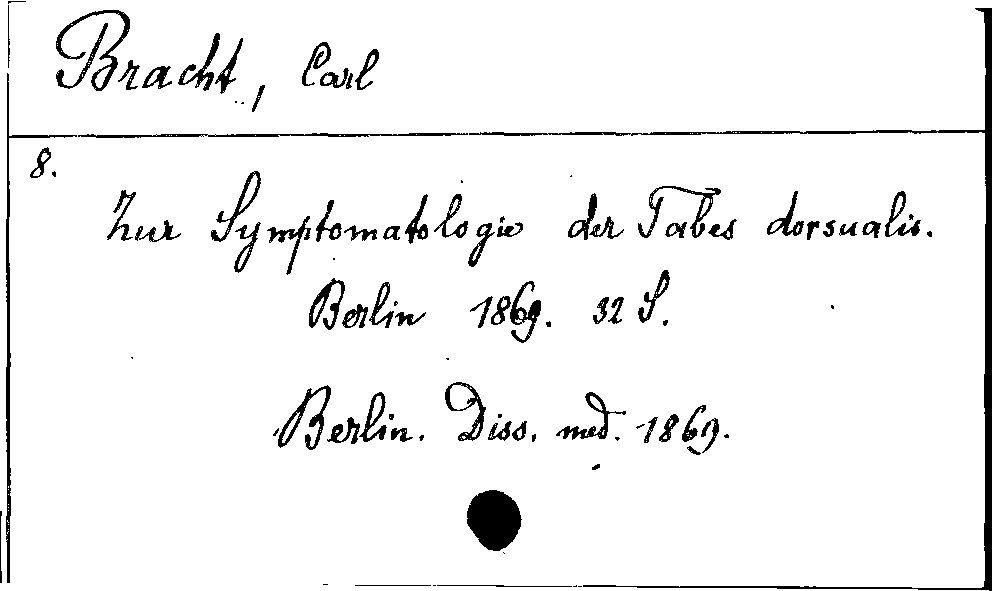 Bracht, Carl
8.
Zur Symptomatologie der Tabes dorsualis.
Berlin 1869. 32 S.
Berlin. Diss. med. 1869.